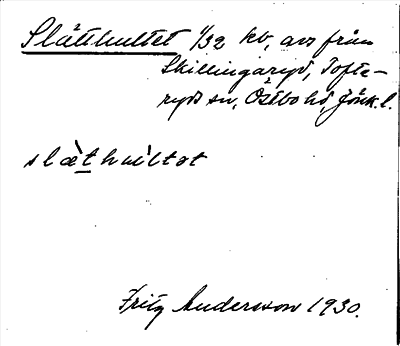 Slätthultet 1/32 kv, avs från
Skillingaryd, Tofte-
ryds sn, Östbo hd, Jönk. l.
slæ̀thultət
Fritz Andersson 1930.